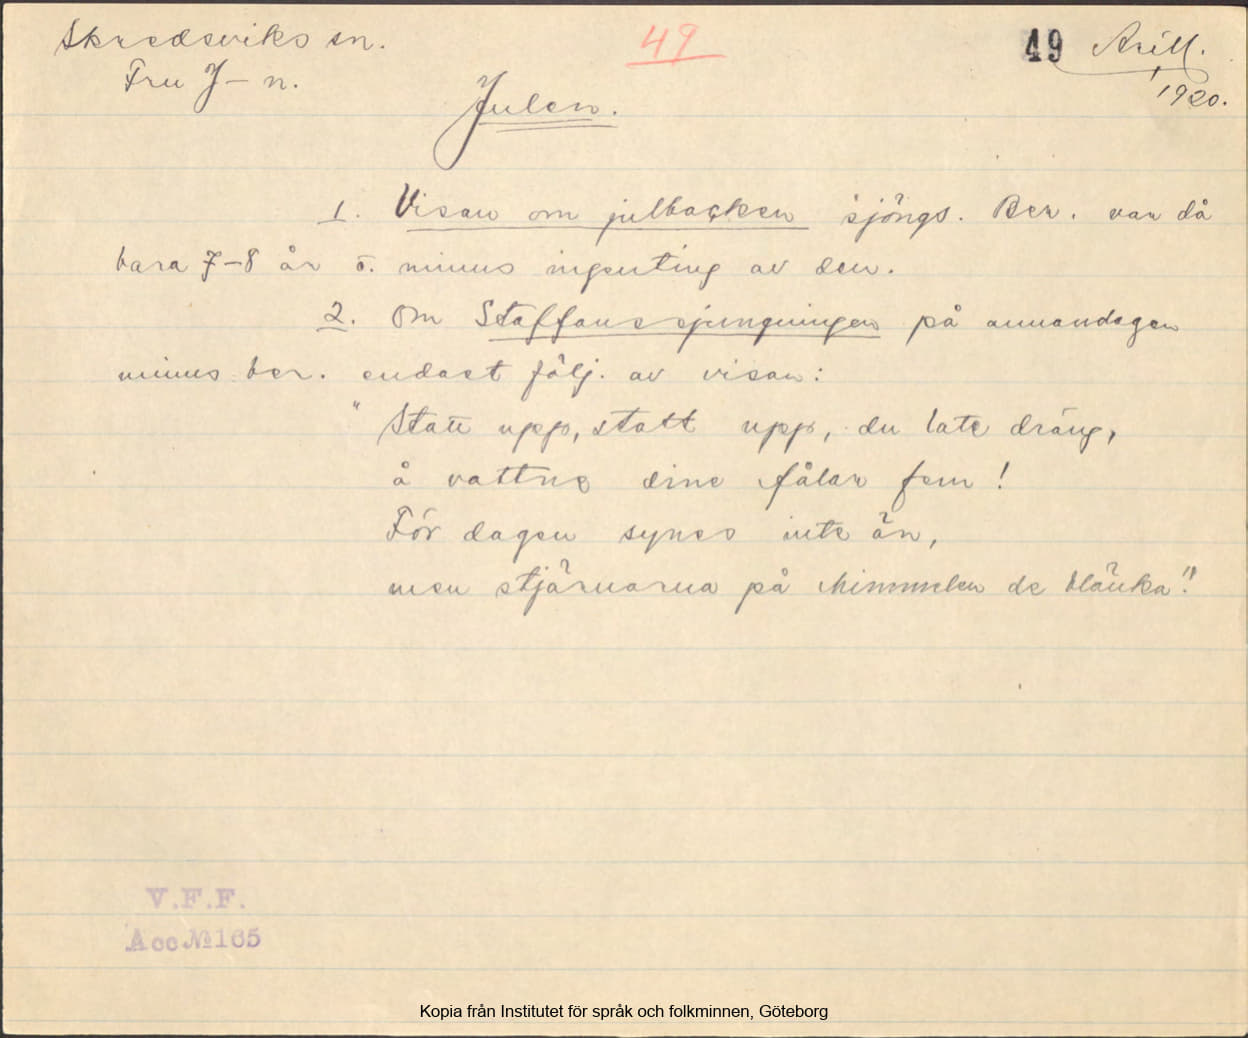 Skredsviks sn.
49
49 Arill.
Fru J–n.
1920.
Julen.
1. Visan om julbocken sjöngs. Ber. var då
bara 7–8 år o. minns ingenting av den.
2. Om Staffanssjungningen på annandagen
minns ber. endast följ. av visan:
"Statt upp, statt upp, du late dräng,
å vattne dine fålar fem!
För dagen synes inte än,
men stjärnarna på himmelen de blänka."
V.F.F.
Acc № 165
Kopia från Institutet för språk och folkminnen, Göteborg